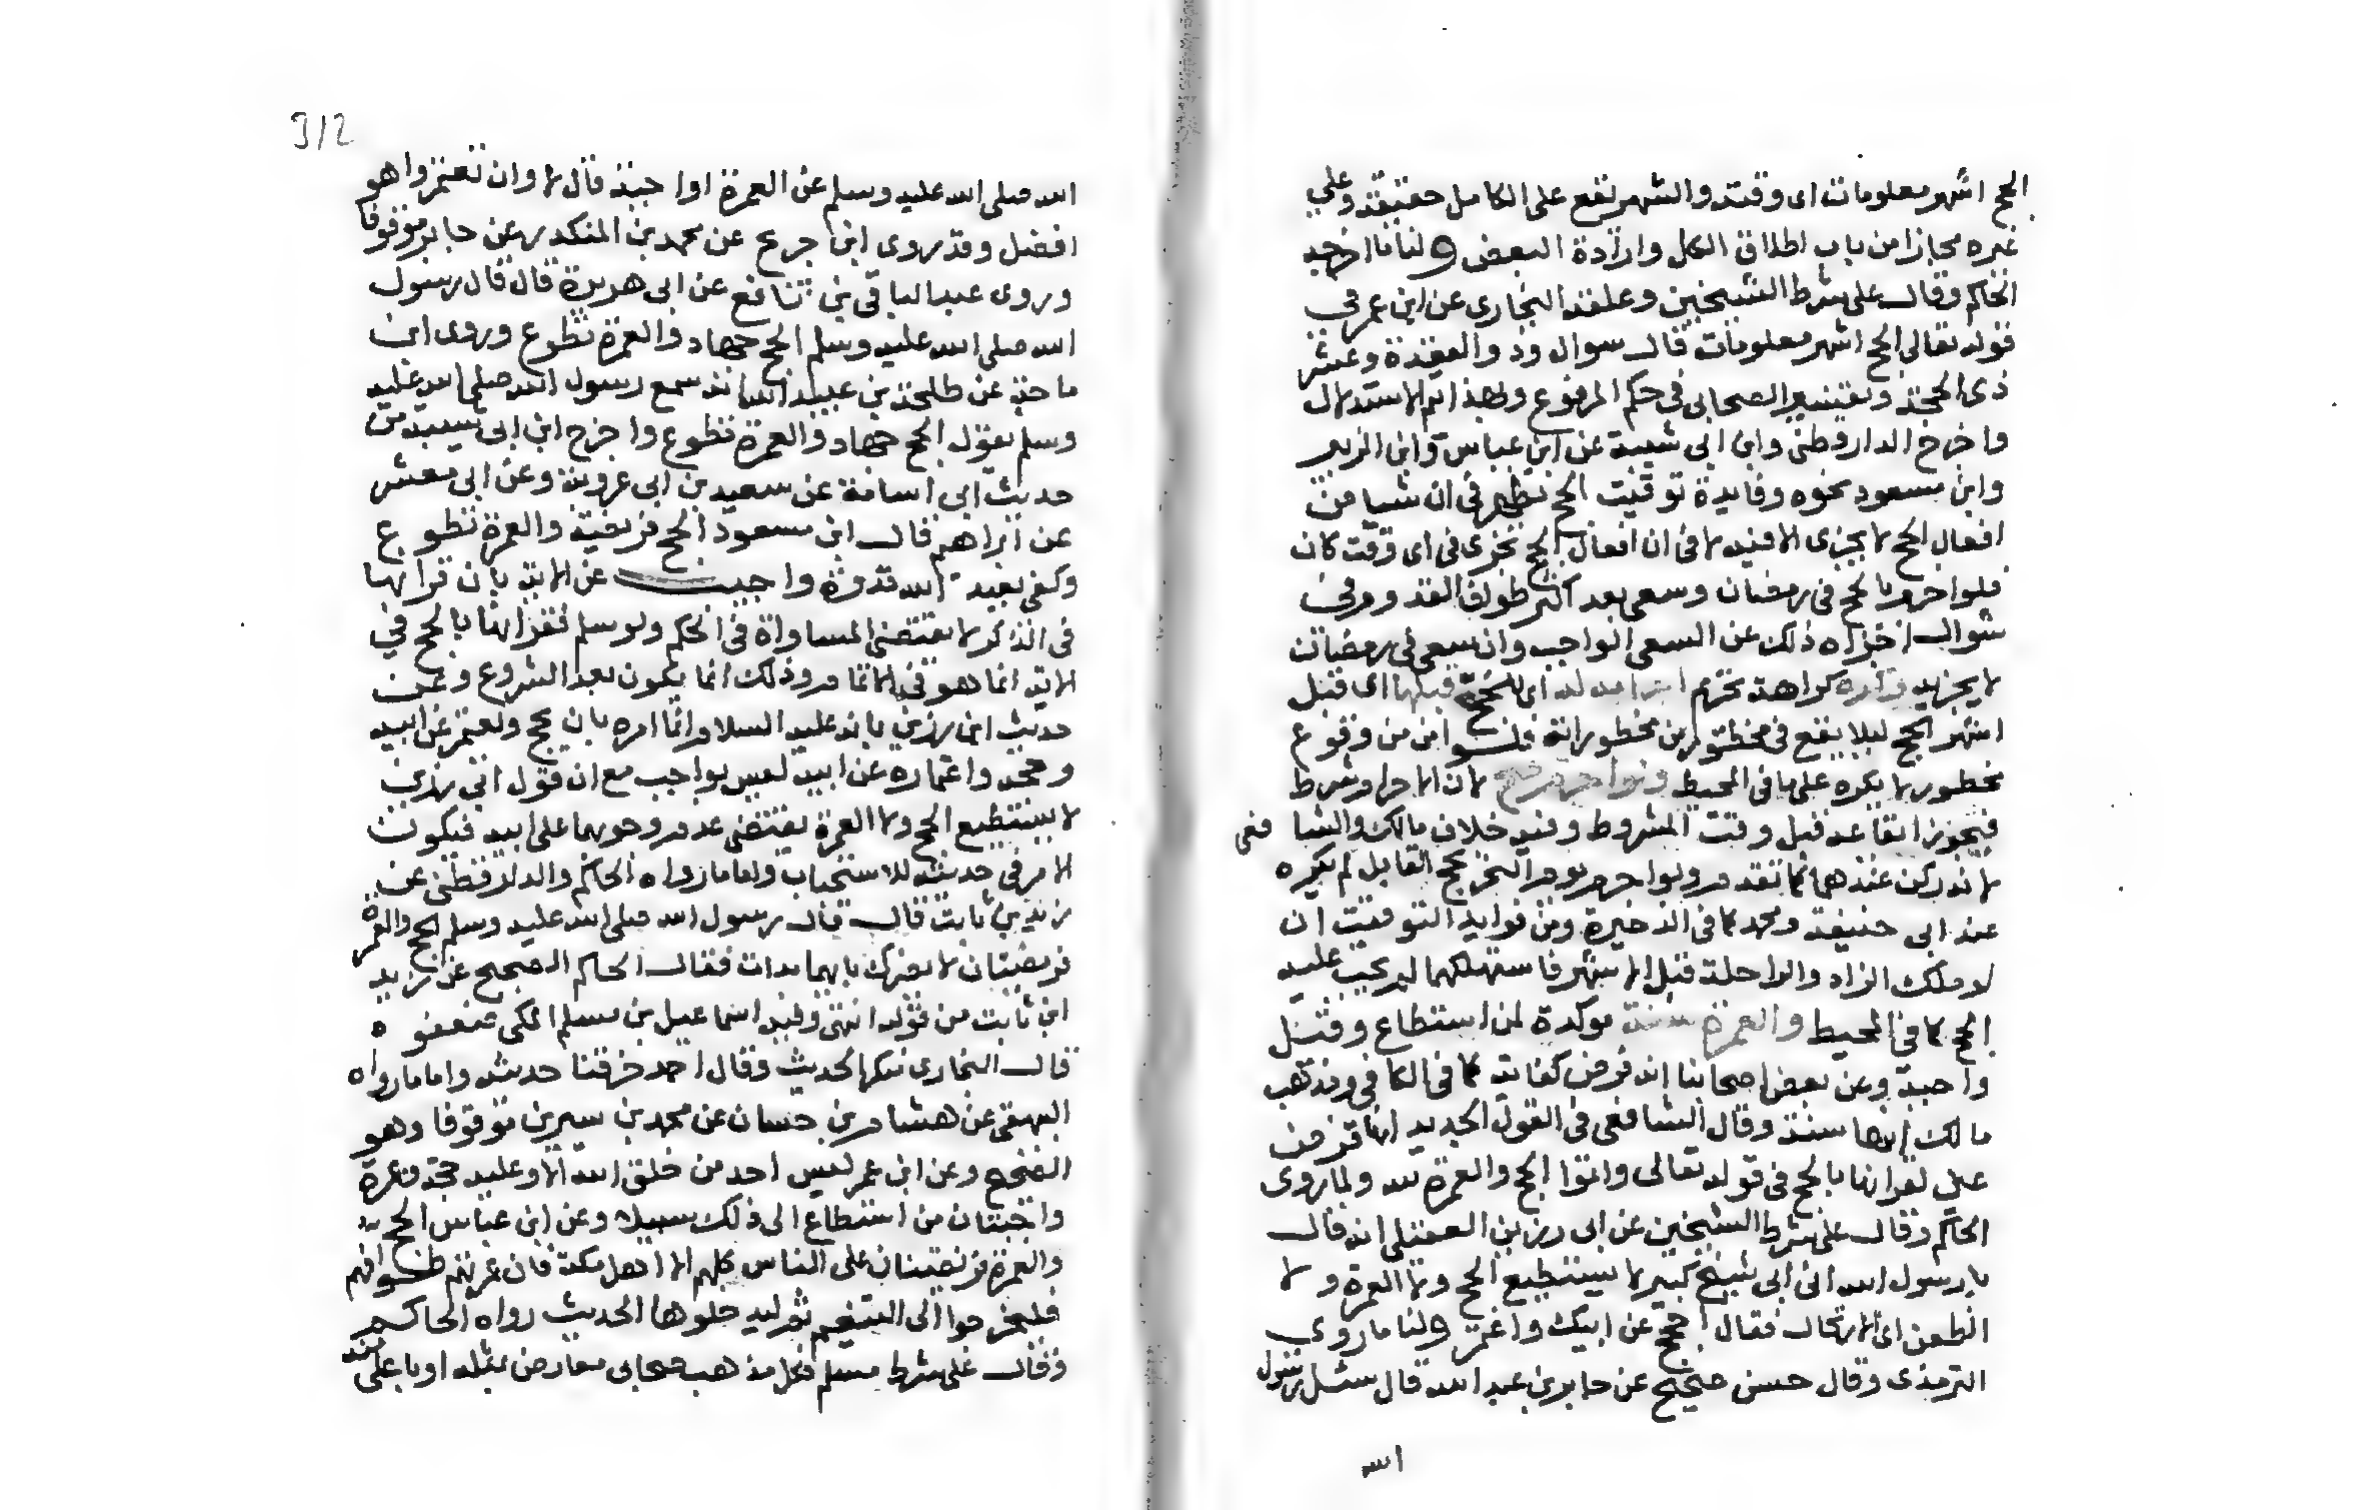 الحج اشهر معلومات اى وقته والشهر يقع على الكامل حقيقة وعلى
غيره مجازا من باب اطلاق الكل وارادة البعض ولنا ما اخرجه
الحاكم وقال على شرط الشيخين وعلقه البخارى عن ابن عمر فى
قوله تعالى الحج اشهر معلومات قال شوال وذو القعدة وعشر
ذى الحجة وتفسير الصحابى فى حكم المرفوع وبهذا تم الاستدلال
واخرج الدارقطنى وابن ابى شيبة عن ابن عباس وابن الزبير
وابن مسعود نحوه وفايدة توقيت الحج تظهر فى ان شيا من
افعال الحج لا يجزى الا فيه لا فى ان افعال الحج تجزى فى اى وقت كان
فلوا حرم بالحج فى رمضان وسعى بعد اكثر طواف القدوم فى
شوال اجزاه ذلك عن السعى الواجب وان سعى فى رمضان
لا يجزيه وكره كراهة تحرم احرامه له اى للحج قبلها اى قبل
اشهر الحج ليلا يقع فى محظور من محظوراته فلو امن من وقوع
محظور لا يكره على ما فى المحيط ولوا حرم صح لان الاحرام شرط
فيجوز ايقاعه قبل وقت المشروط وفيه خلاف مالك والشافعى
لانه ركن عندهما كما تقدم ولوا حرم يوم النحر بحج القابل لم يكره
عند ابى حنيفة ومحمد كما فى الذخيرة ومن فوايد التوقيت ان
لو ملك الزاد والراحلة قبل الاشهر فاستهلكهما لم يجب عليه
الحج كما فى المحيط والعمرة سنة موكدة لمن استطاع وقيل
واجبة وعن بعض اصحابنا انه فرض كفاية كما فى الكافى ومذهب
مالك انها سنة وقال الشافعى فى القول الجديد انها فرض
عين لقرانها بالحج فى قوله تعالى واتموا الحج والعمرة لله ولما روى
الحاكم وقال على شرط الشيخين عن ابى رزين العقيلى انه قال
يا رسول الله ان ابى شيخ كبير لا يستطيع الحج ولا العمرة ولا
الظعن اى الارتحال فقال احجج عن ابيك واعتمر ولنا ما روى
الترمذى وقال حسن صحيح عن جابر بن عبد الله قال سئل رسول
الله
312
الله صلى الله عليه وسلم عن العمرة اواجبة قال لا وان تعتمروا هو
افضل وقد روى ابن جريج عن محمد بن المنكدر عن جابر موقوفا
وروى عبد الباقى بن قانع عن ابى هريرة قال قال رسول
الله صلى الله عليه وسلم الحج جهاد والعمرة تطوع وروى ابن
ماجة عن طلحة بن عبيد الله انه سمع رسول الله صلى الله عليه
وسلم يقول الحج جهاد والعمرة تطوع واخرج ابن ابى شيبة من
حديث ابى اسامة عن سعيد بن ابى عروبة وعن ابى معشر
عن ابراهيم قال ابن مسعود الحج فريضة والعمرة تطوع
وكفى بعبد الله قدوة واجيب عن الاية بان قرانها
فى الذكر لا يقتضى المساواة فى الحكم ولو سلم فقرانها بالحج فى
الاية انما هو فى الاتمام وذلك انما يكون بعد الشروع وعن
حديث ابى رزين بانه عليه السلام انما امره بان يحج ويعتمر عن ابيه
وحجه واعتماره عن ابيه ليس بواجب مع ان قول ابى رزين
لا يستطيع الحج ولا العمرة يقتضى عدم وجوبهما على ابيه فيكون
الامر فى حديثه للاستحباب واما ما رواه الحاكم والدارقطنى عن
زيد بن ثابت قال قال رسول الله صلى الله عليه وسلم الحج والعمرة
فريضتان لا يضرك بايهما بدات فقال الحاكم الصحيح عن زيد
ابن ثابت من قوله انتهى وفيه اسماعيل بن مسلم المكى ضعفوه
قال البخارى منكر الحديث وقال احمد خرقنا حديثه واما ما رواه
البيهقى عن هشام بن حسان عن محمد بن سيرين موقوفا وهو
الصحيح وعن ابن عمر ليس احد من خلق الله الا وعليه حجة وعمرة
واجبتان من استطاع الى ذلك سبيلا وعن ابن عباس الحج
والعمرة فريضتان على الناس كلهم الا اهل مكة فان عمرتهم طوافهم
فليخرجوا الى التنعيم ثم ليدخلوها الحديث رواه الحاكم
وقال على شرط مسلم فكل مذهب صحابى معارض بمثله او باعلى منه